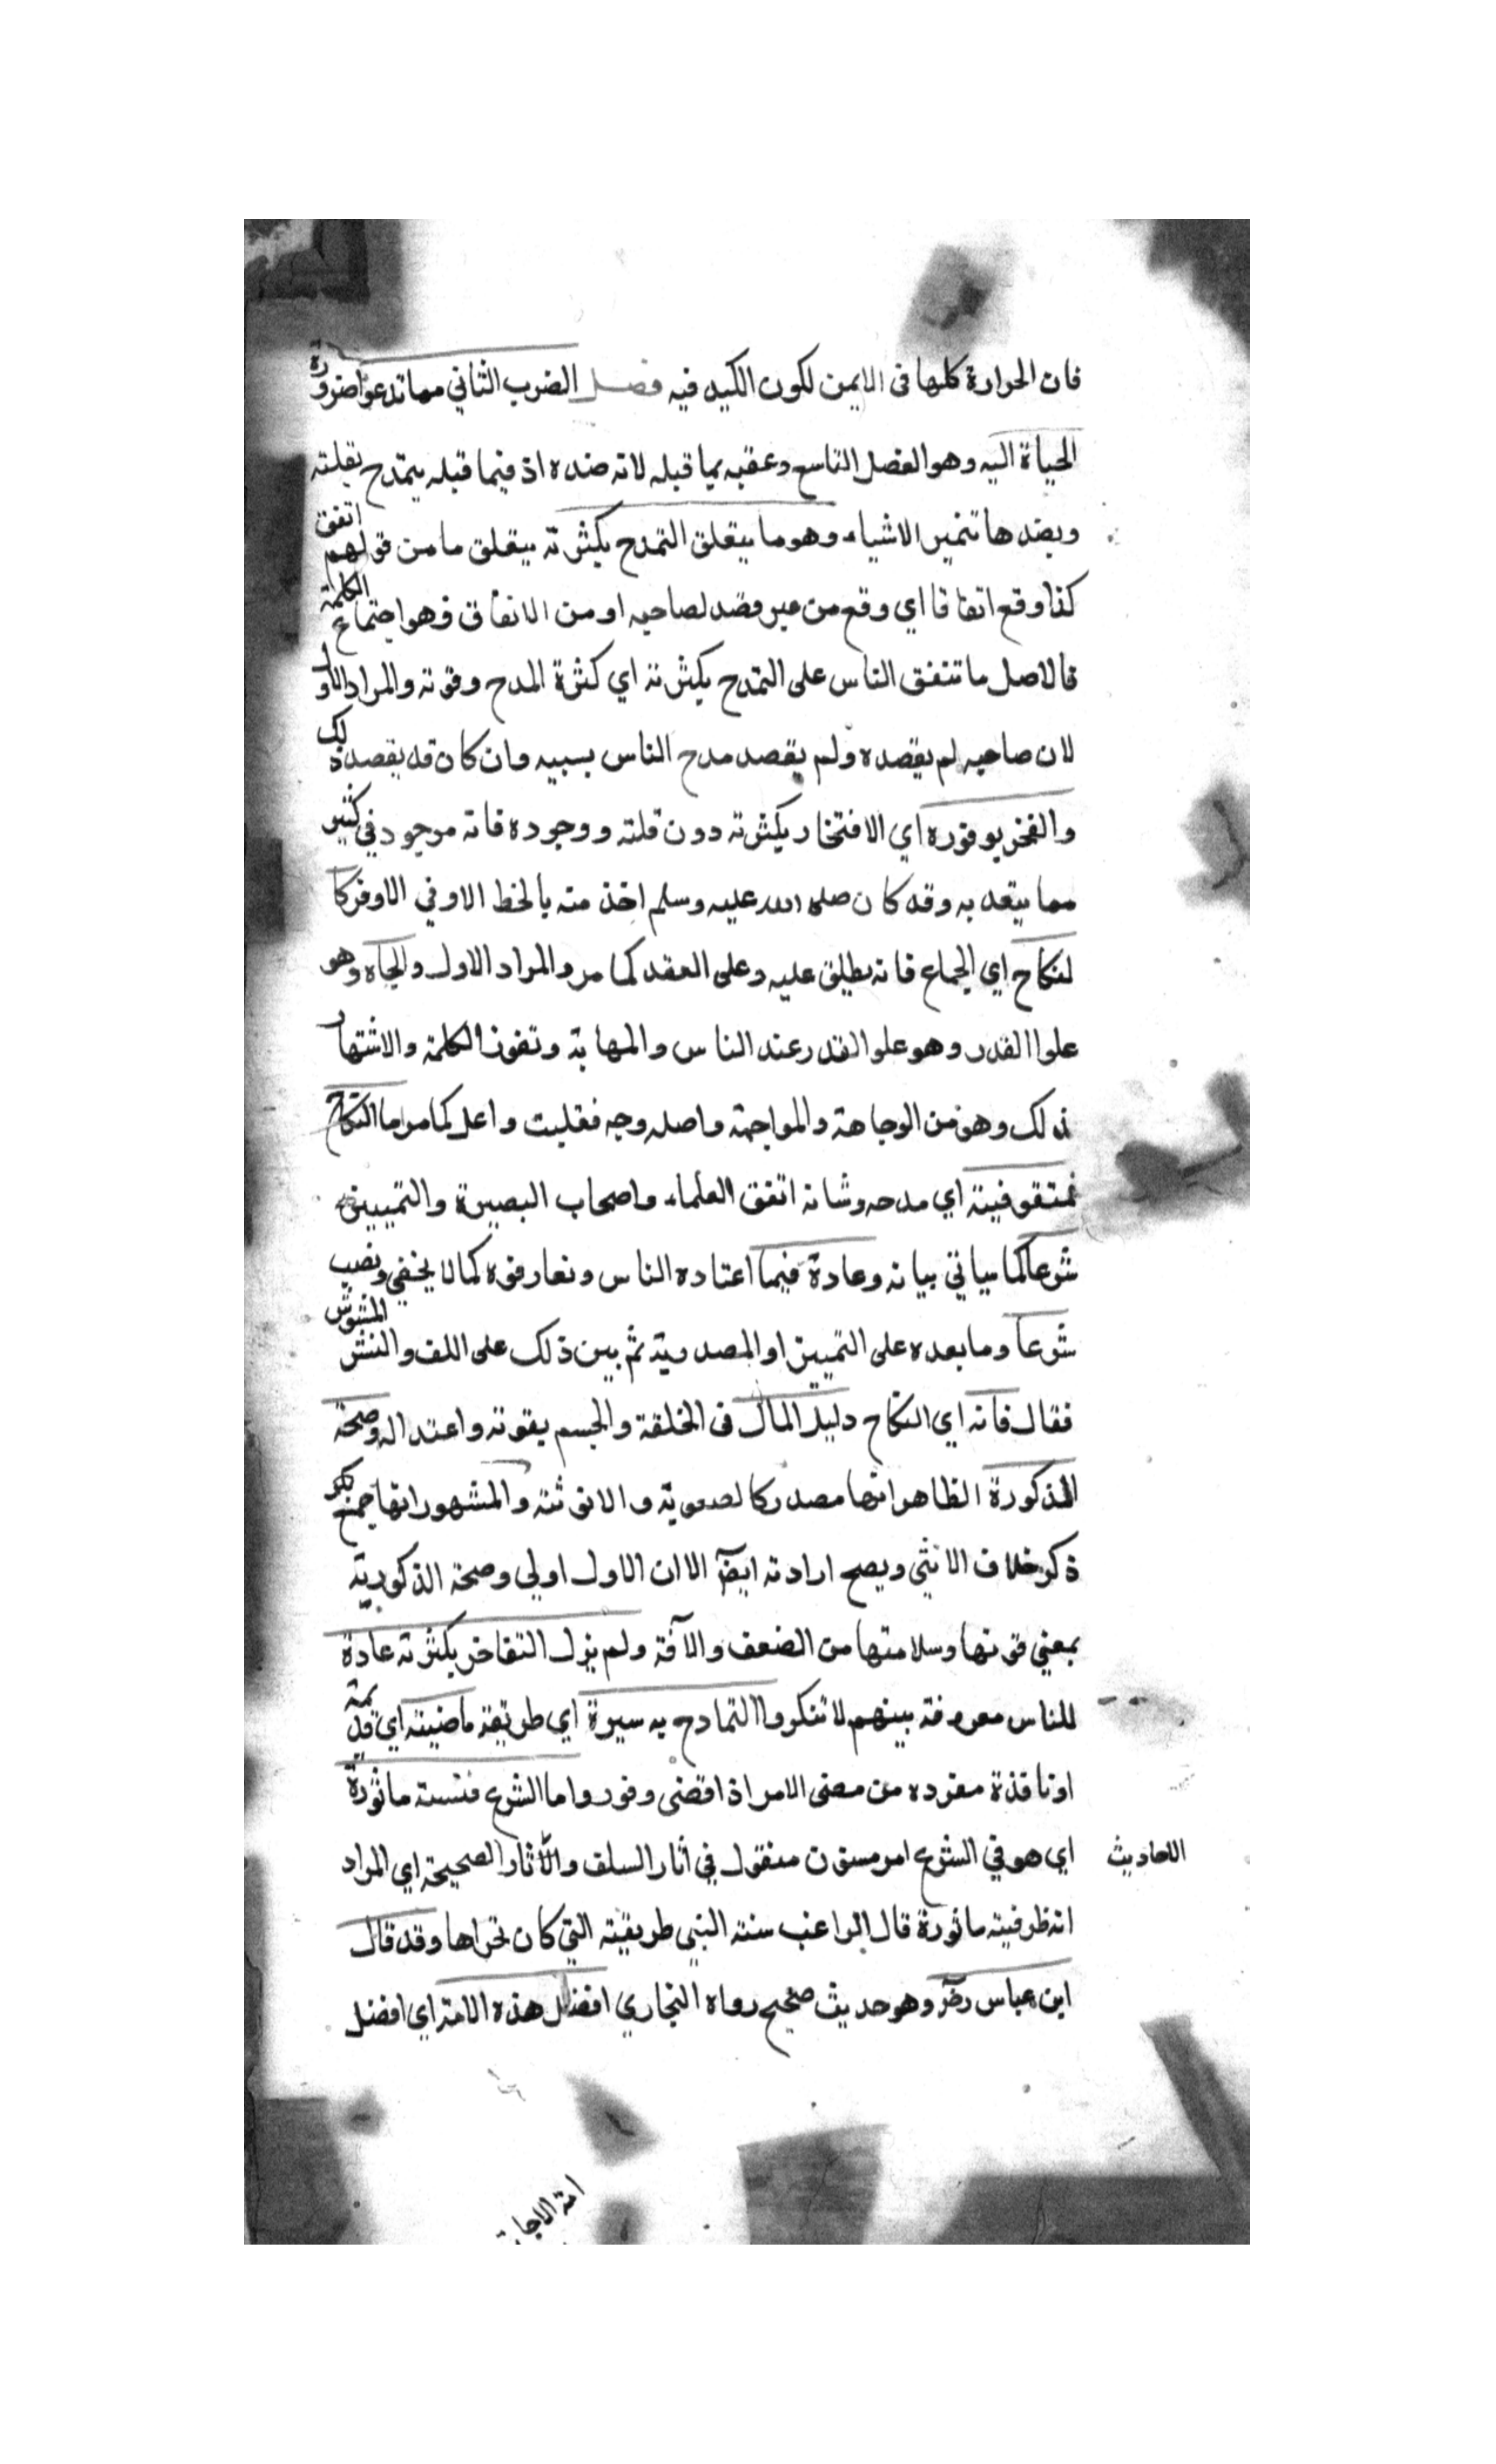 فان الحرارة كلها فى الايمن لكون الكبد فيه فصل الضرب الثاني مما تدعو ضرورة
الحياة اليه وهو الفصل التاسع وعقبه بما قبله لانه ضده اذ فيما قبله يتمدح بقلته
وبضدها تتميز الاشياء وهو ما يتعلق التمدح بكثرته يتعلق ما من قولهم اتفق
كذا وقع اتفاقا اي وقع من غير قصد لصاحبه او من الاتفاق وهو اجتماع الكلمة
فالاصل ما تتفق الناس على التمدح بكثرته اي كثرة المدح وقوته والمراد الاول
لان صاحبه لم يقصده ولم يقصد مدح الناس بسببه وان كان قد يقصد ذلك
والفخر بوفوره اي الافتخار بكثرته دون قلته ووجوده فانه موجود في كثير
مما يتعد به وقد كان صلى الله عليه وسلم اخذ منه بالحظ الاوفي الاوفر كا
لنكاح اي الجماع فانه يطلق عليه وعلى العقد كما مر والمراد الاول والجاه وهو
علوا القدر وهو علو القدر عند الناس والمهابة وتفوذ الكلمة والاشتهار
ذلك وهو من الوجاهة والمواجهة واصله وجه فقلبت واعل كما مر اما النكاح
فمتفق فيه اي مدحه وشانه اتفق العلماء واصحاب البصيرة والتمييز
شرعا كما سياتي بيانه وعادة فيما اعتاده الناس وتعارفوه كما لا يخفي ونصب
شرعا وما بعده على التمييز او المصدرية ثم بين ذلك على اللف والنشر المشوش
فقال فانه اي النكاح دليل المال فى الخلقة والجسم بقوته واعتداله وصحة
الذكورة الظاهر انها مصدر كالصعوبة والانوثة والمشهور انها جمع ذكر
ذكر خلاف الانثي ويصح ارادته ايضا الا ان الاول اولي وصحة الذكورية
بمعني قوتها وسلامتها من الضعف والآفة ولم يزل التفاخر بكثرته عادة
للناس معروفة بينهم لا تنكر والتمادح به سيرة اي طريقة ماضية اي قديمة
او نافذة من مضى الامر اذا قضى واما الشرع فسنة ماثورة
اي هو في الشرع امر مسنون منقول في آثار السلف والآثار الصحيحة اي المراد
الاحاديث
ماثورة قال الراغب سنة النبي طريقته التي كان تحراها وقد قال
ابن عباس رضي وهو حديث صحيح رواه البخاري افضل هذه الامة اي افضل